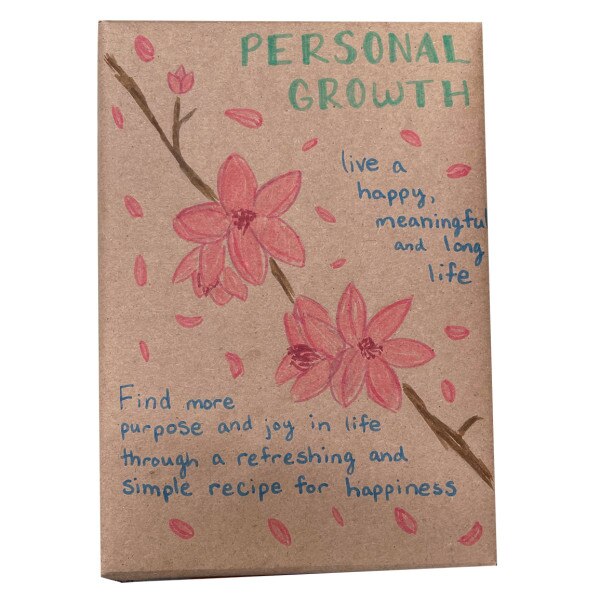 PERSONAL
GROWTH
live a
happy,
meaningful
and long
life
Find more
purpose and joy in life
through a refreshing and
simple recipe for happiness